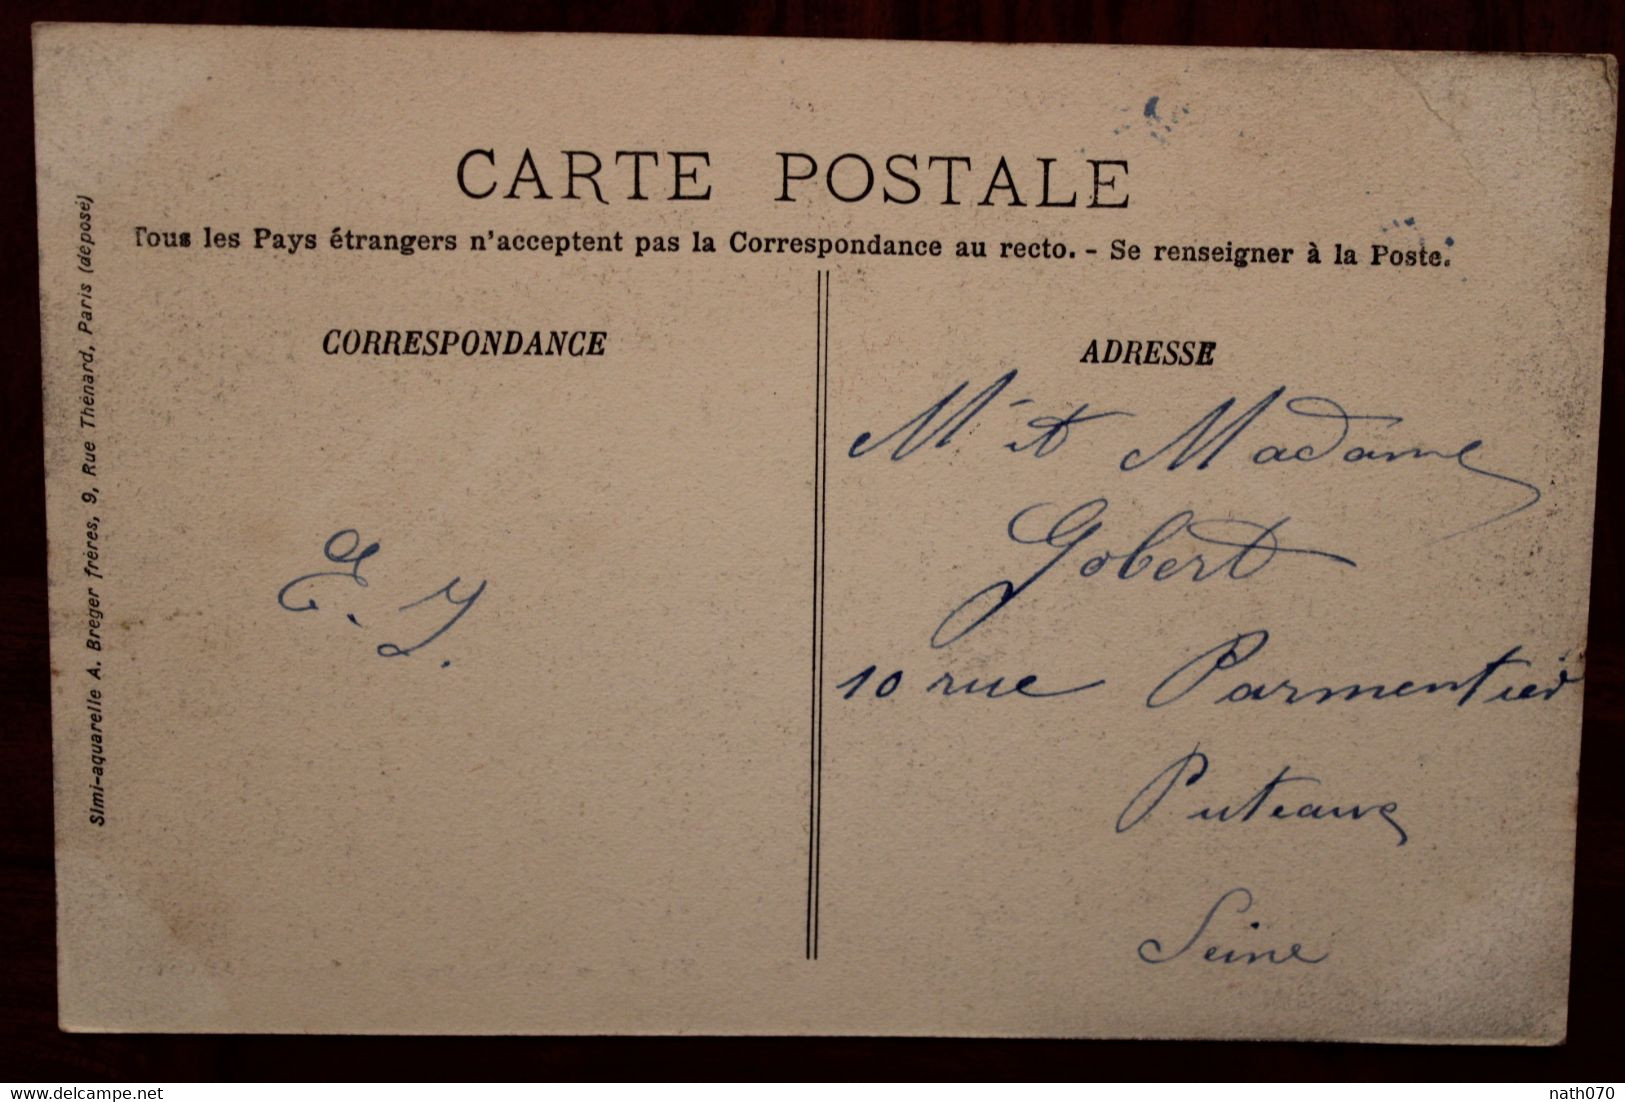 CARTE POSTALE
Tous les Pays étrangers n'acceptent pas la Correspondance au recto. - Se renseigner à la Poste.
Simi-aquarelle A. Breger frères, 9, Rue Thénard, Paris (déposé)
CORRESPONDANCE
E. J.
ADRESSE
Mr et Madame
Gobert
10 rue Parmentier
Puteaux
Seine
delcampe.net
nath070